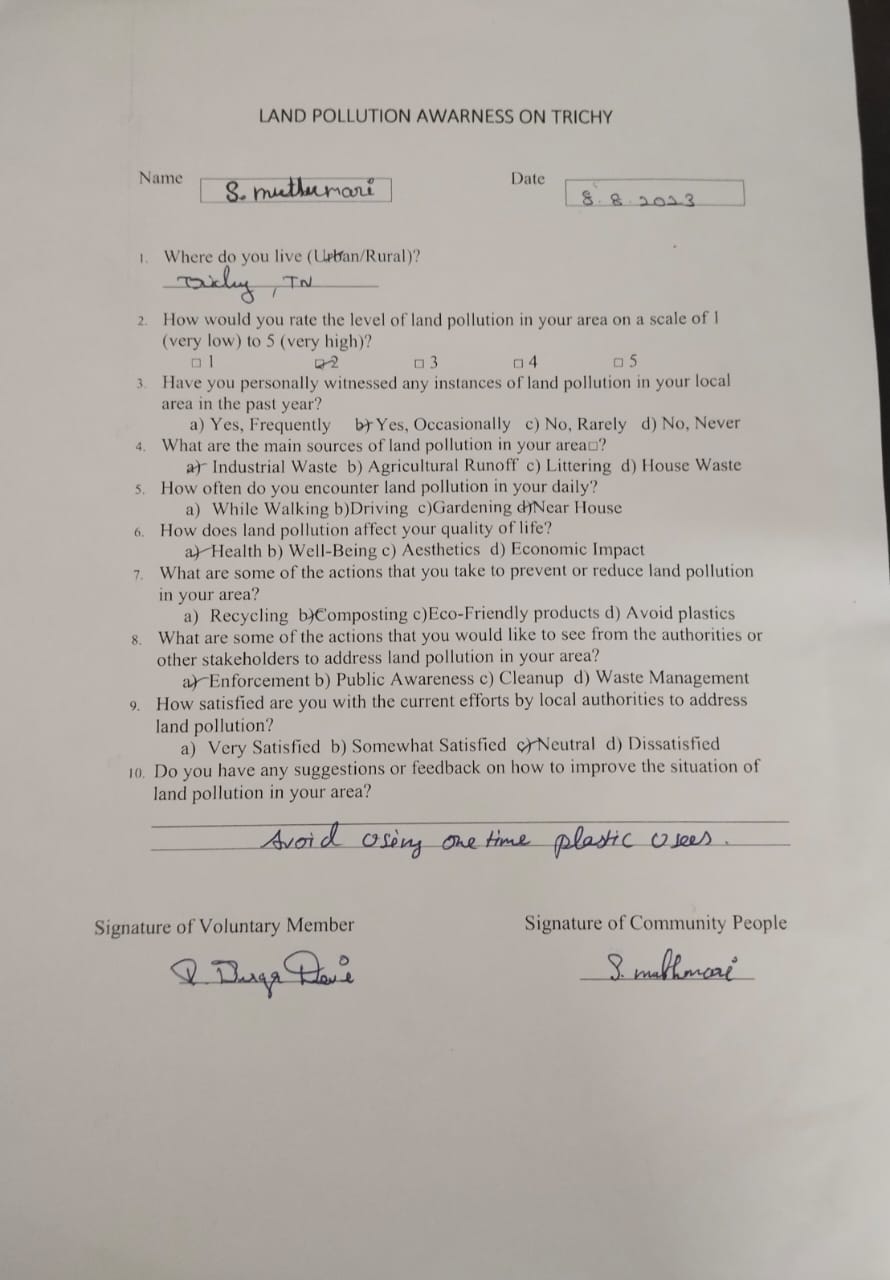 LAND POLLUTION AWARNESS ON TRICHY
Name S. muthumari Date 8.8.2023
1. Where do you live (Urban/Rural)?
Trichy, TN
2. How would you rate the level of land pollution in your area on a scale of 1
(very low) to 5 (very high)?
□ 1 □ 2 □ 3 □ 4 □ 5
3. Have you personally witnessed any instances of land pollution in your local
area in the past year?
a) Yes, Frequently b) Yes, Occasionally c) No, Rarely d) No, Never
4. What are the main sources of land pollution in your area□?
a) Industrial Waste b) Agricultural Runoff c) Littering d) House Waste
5. How often do you encounter land pollution in your daily?
a) While Walking b)Driving c)Gardening d)Near House
6. How does land pollution affect your quality of life?
a) Health b) Well-Being c) Aesthetics d) Economic Impact
7. What are some of the actions that you take to prevent or reduce land pollution
in your area?
a) Recycling b)Composting c)Eco-Friendly products d) Avoid plastics
8. What are some of the actions that you would like to see from the authorities or
other stakeholders to address land pollution in your area?
a) Enforcement b) Public Awareness c) Cleanup d) Waste Management
9. How satisfied are you with the current efforts by local authorities to address
land pollution?
a) Very Satisfied b) Somewhat Satisfied c) Neutral d) Dissatisfied
10. Do you have any suggestions or feedback on how to improve the situation of
land pollution in your area?
Avoid using one time plastic usees.
Signature of Voluntary Member Signature of Community People
Durga Devi S. muthmari